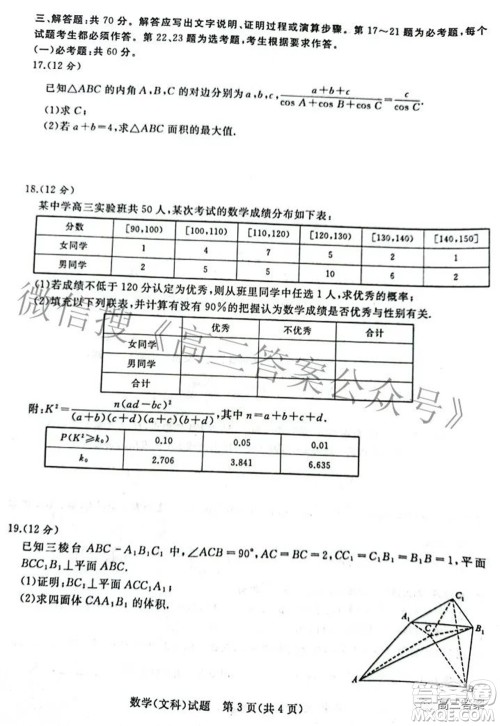 三、解答题：共 70 分。解答应写出文字说明、证明过程或演算步骤。第 17～21 题为必考题，每个
试题考生都必须作答。第 22、23 题为选考题，考生根据要求作答。
(一)必考题：共 60 分。
17.(12 分)
已知△ABC 的内角 A,B,C 的对边分别为 a,b,c, (a+b+c)/(cos A+cos B+cos C)=c/cos C.
(1)求 C;
(2)若 a+b=4,求△ABC 面积的最大值.
18.(12 分)
某中学高三实验班共 50 人，某次考试的数学成绩分布如下表：
分数 [90,100) [100,110) [110,120) [120,130) [130,140) [140,150]
女同学 1 4 5 7 2
男同学 1 2 5 10 6 2
(1)若成绩不低于 120 分认定为优秀，则从班里同学中任选 1 人，求优秀的概率；
(2)填充以下列联表，并计算有没有 90%的把握认为数学成绩是否优秀与性别有关.
优秀 不优秀 合计
女同学
男同学
合计
附：K²=n(ad-bc)²/((a+b)(c+d)(a+c)(b+d)),其中 n=a+b+c+d.
P(K²≥k₀) 0.10 0.05 0.01
k₀ 2.706 3.841 6.635
19.(12 分)
已知三棱台 ABC-A₁B₁C₁ 中，∠ACB=90°，AC=BC=2，CC₁=C₁B₁=1，平面
BCC₁B₁⊥平面 ACC₁A₁.
(1)证明：BC₁⊥平面 ACC₁A₁；
(2)求四面体 CAA₁B₁ 的体积.
C₁
A₁
B₁
C
A
B
数学(文科)试题 第 3 页(共 4 页)
微信搜《高三答案公众号》
高三答案